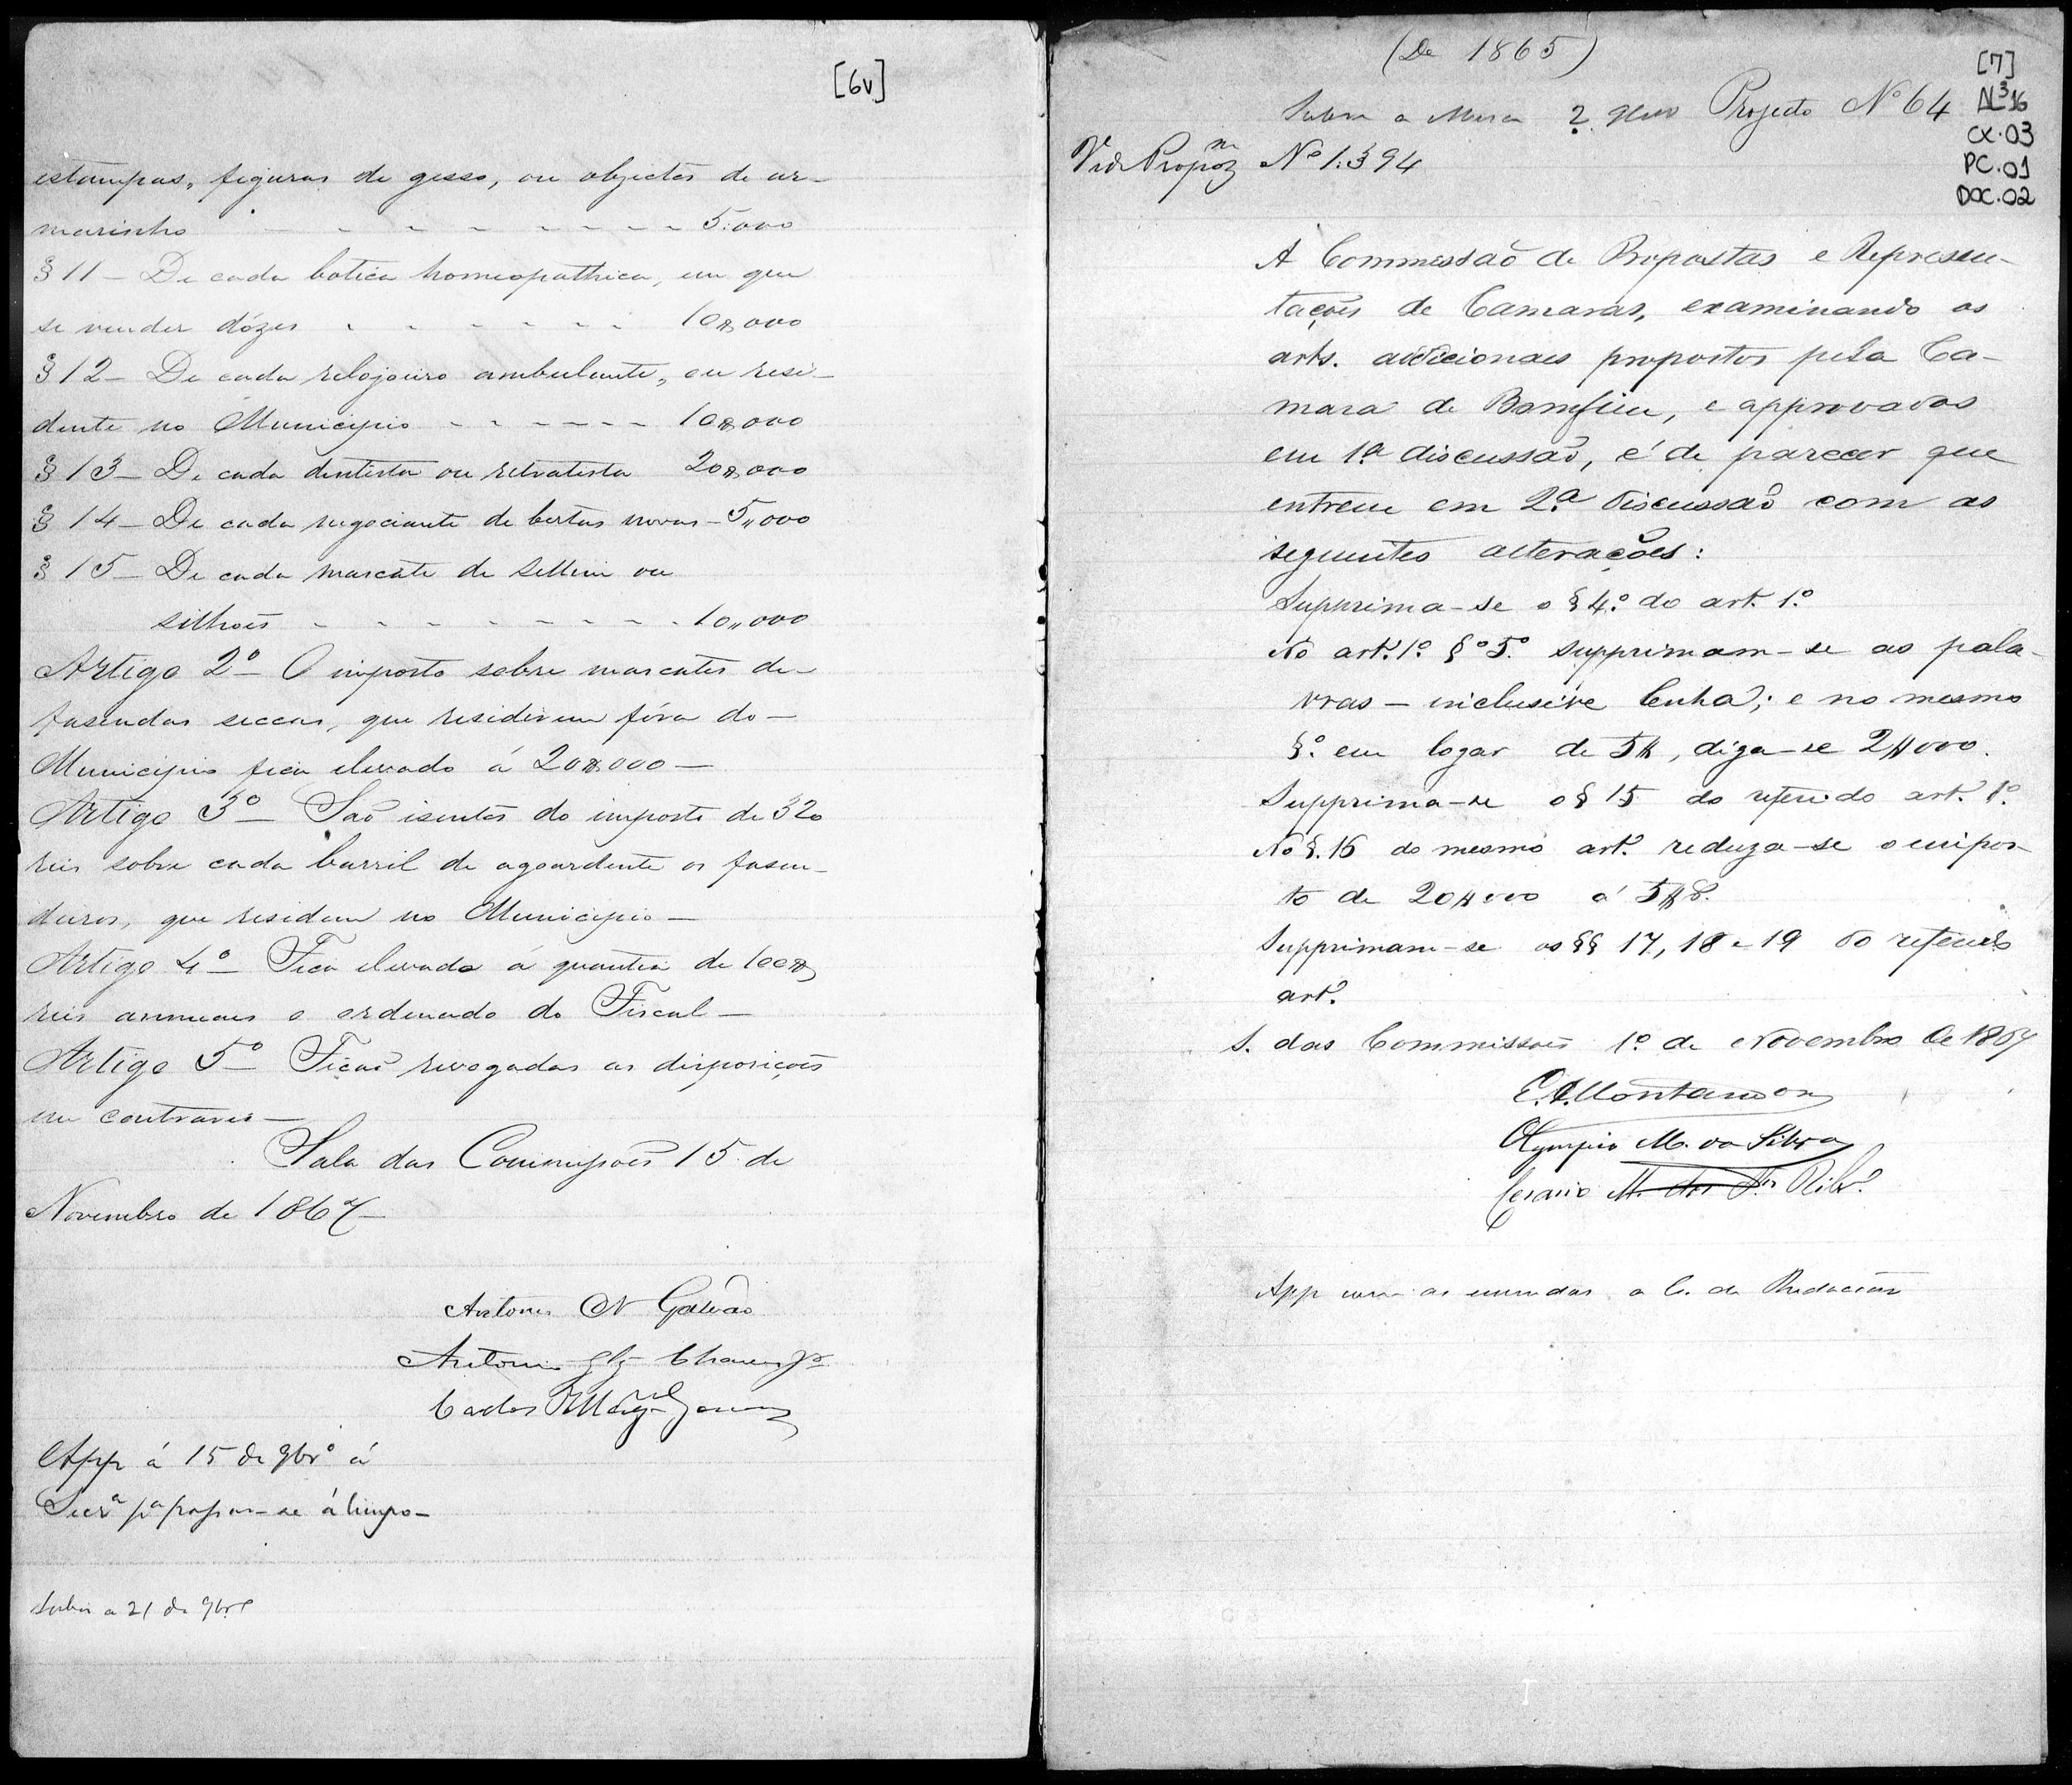 [6v]
estampas, figuras de gesso, ou objectos de ar-
marinho - - - - - - - - 5:000
§ 11 - De cada botica homeopathica, em que
se vender dózes - - - - - - 10$000
§ 12 - De cada relojoeiro ambulante, ou resi-
dente no Municipio - - - - - - 10$000
§ 13 - De cada dentista ou retratista 20$000
§ 14 - De cada negociante de bestas novas - 5,,000
§ 15 - De cada mascate de sellins ou
silhões - - - - - - - - 10,,000
Artigo 2º - O imposto sobre mascates de
fasendas seccas, que residirem fóra do -
Municipio fica elevado á 20$000 -
Artigo 3º - São isentos do imposto de 320
reis sobre cada barril de agoardente os fasen-
deiros, que residem no Municipio -
Artigo 4º - Fica elevado á quantia de 100$
reis annuaes o ordenado do Fiscal -
Artigo 5º - Ficão revogadas as disposições
em contrario -
Sala das Commissões 15 de
Novembro de 1867 -
Antonio Galvão
Antonio Chaves Jor
Carlos
App á 15 de 9brº á
Secrª pª -se á limpo -
a 21 de 9brº
(De 1865)
[7]
Sobre a Mesa 2 Projecto Nº 64
AL316
CX.03
PC.01
DOC.02
Vide Propoz Nº 1:394
A Commessão de Propostas e Represen-
tações de Camaras, examinando os
arts. addicionaes propostos pela Ca-
mara de Bomfim, e approvados
em 1ª discussão, é de parecer que
entrem em 2ª discussão com as
seguintes alterações:
Supprima-se o § 4º do art. 1º
No art. 1º §º 5º supprimam-se as pala-
vras - inclusive lenha; e no mesmo
§º em logar de 5$, diga-se 2$000.
Supprima-se o § 15 do referido art. 1º
No §. 16 do mesmo artº reduza-se o impos-
to de 20$000 á 5$.
Supprimam-se os §§ 17, 18 e 19 do referido
artº
S. das Commissões 1º de Novembro de 1867
Montandon
Olympio M. da Silva
Cesario M. dos Ribrº
App com as emendas a C. de Redacção